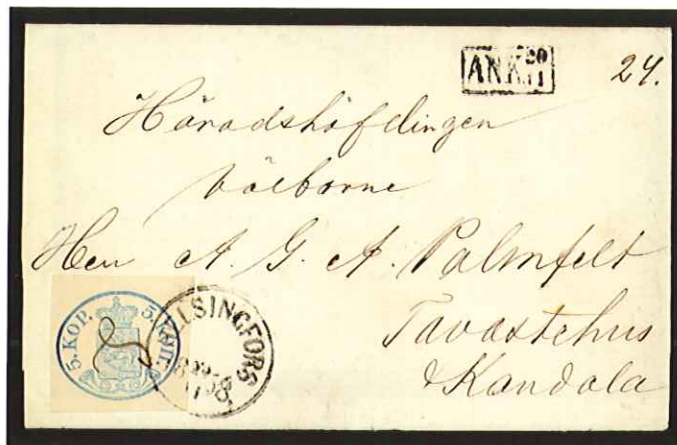 ANK. 20
11
24.
Häradshöfdingen
Välborne
Herr A. G. A. Palmfelt
Tavastehus
& Kandala
5. KOP. 5. КОП.
HELSINGFORS